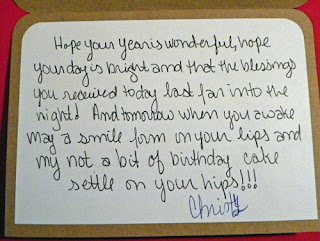 Hope your year is wonderful, hope
your day is bright and that the blessings
you received today last far into the
night! And tomorrow when you awake
may a smile form on your lips and
my not a bit of birthday cake
settle on your hips!!!
Christy